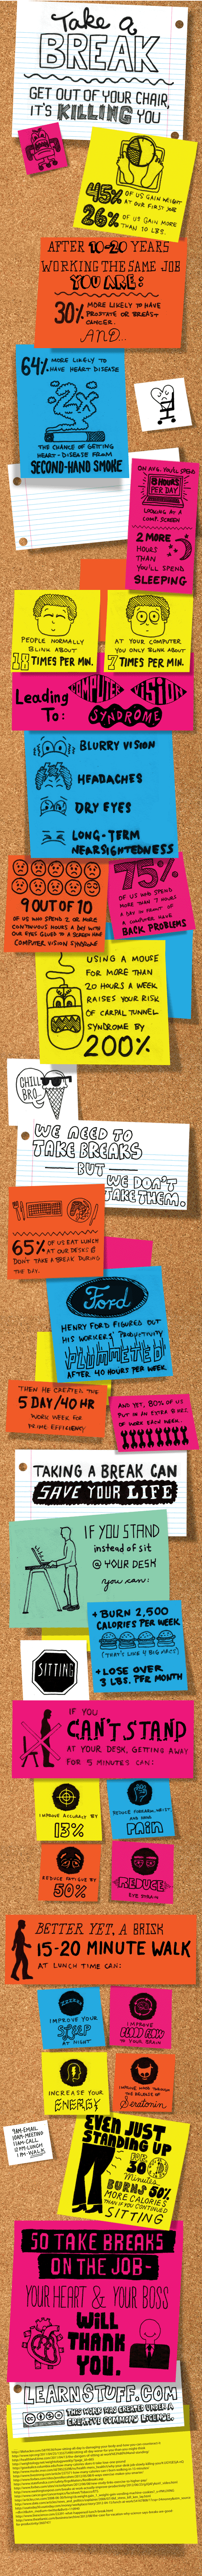 Take a
BREAK
GET OUT OF YOUR CHAIR,
IT'S KILLING YOU
45% OF US GAIN WEIGHT
AT OUR FIRST JOB
26% OF US GAIN MORE
THAN 10 LBS.
AFTER 10-20 YEARS
WORKING THE SAME JOB
YOU ARE:
30% MORE LIKELY TO HAVE
PROSTATE OR BREAST
CANCER.
AND...
64% MORE LIKELY TO
HAVE HEART DISEASE
2X
THE CHANCE OF GETTING
HEART-DISEASE FROM
SECOND-HAND SMOKE
ON AVG. YOU'LL SPEND
8 HOURS
PER DAY
LOOKING AT A
COMP. SCREEN
2 MORE
HOURS
THAN
YOU'LL SPEND
SLEEPING
PEOPLE NORMALLY
BLINK ABOUT
18 TIMES PER MIN.
AT YOUR COMPUTER
YOU ONLY BLINK ABOUT
7 TIMES PER MIN.
Leading
To:
COMPUTER VISION
SYNDROME
BLURRY VISION
HEADACHES
DRY EYES
LONG-TERM
NEARSIGHTEDNESS
9 OUT OF 10
OF US WHO SPEND 2 OR MORE
CONTINUOUS HOURS A DAY WITH
OUR EYES GLUED TO A SCREEN HAVE
COMPUTER VISION SYNDROME
75%
OF US WHO SPEND
MORE THAN 7 HOURS
A DAY IN FRONT OF
A COMPUTER HAVE
BACK PROBLEMS
USING A MOUSE
FOR MORE THAN
20 HOURS A WEEK
RAISES YOUR RISK
OF CARPAL TUNNEL
SYNDROME BY
200%
CHILL
BRO
WE NEED TO
TAKE BREAKS
BUT
WE DON'T
TAKE THEM.
65% OF US EAT LUNCH
AT OUR DESKS &
DON'T TAKE A BREAK DURING
THE DAY.
Ford
HENRY FORD FIGURED OUT
HIS WORKERS' Productivity
PLUMMETED
AFTER 40 HOURS PER WEEK.
THEN HE CREATED THE
5 DAY/40 HR
WORK WEEK FOR
PRIME EFFICIENCY
AND YET, 80% OF US
PUT IN AN EXTRA 8 HRS.
OF WORK EACH WEEK.
TAKING A BREAK CAN
SAVE YOUR LIFE
IF YOU STAND
instead of sit
@ YOUR DESK
you can:
+ BURN 2,500
CALORIES PER WEEK
(THAT'S LIKE 4 BIG MACS)
+ LOSE OVER
3 LBS. PER MONTH
SITTING
IF YOU
CAN'T STAND
AT YOUR DESK, GETTING AWAY
FOR 5 MINUTES CAN:
IMPROVE ACCURACY BY
13%
REDUCE FOREARM, WRIST
AND HAND
PAIN
REDUCE FATIGUE BY
50%
REDUCE
EYE STRAIN
BETTER YET, A BRISK
15-20 MINUTE WALK
AT LUNCH TIME CAN:
IMPROVE YOUR
SLEEP
AT NIGHT
IMPROVE
BLOOD FLOW
TO YOUR BRAIN
INCREASE YOUR
ENERGY
IMPROVE MOOD THROUGH
THE RELEASE OF
Seratonin
9AM-EMAIL
10AM-MEETING
11AM-CALL
12PM-LUNCH
1PM-WALK
EVEN JUST
STANDING UP
FOR
30
Minutes
BURNS 50%
MORE CALORIES
THAN IF YOU CONTINUED
SITTING
SO TAKE BREAKS
ON THE JOB-
YOUR HEART & YOUR BOSS
WILL
THANK
YOU.
LEARNSTUFF.COM
THIS WORK WAS CREATED UNDER A
CREATIVE COMMONS LICENSE.